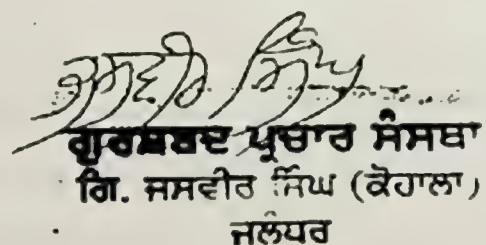 ਜਸਵੀਰ ਸਿੰਘ
ਗੁਰਸ਼ਬਦ ਪ੍ਰਚਾਰ ਸੰਸਥਾ
ਗਿ. ਜਸਵੀਰ ਸਿੰਘ (ਕੋਹਾਲਾ)
ਜਲੰਧਰ